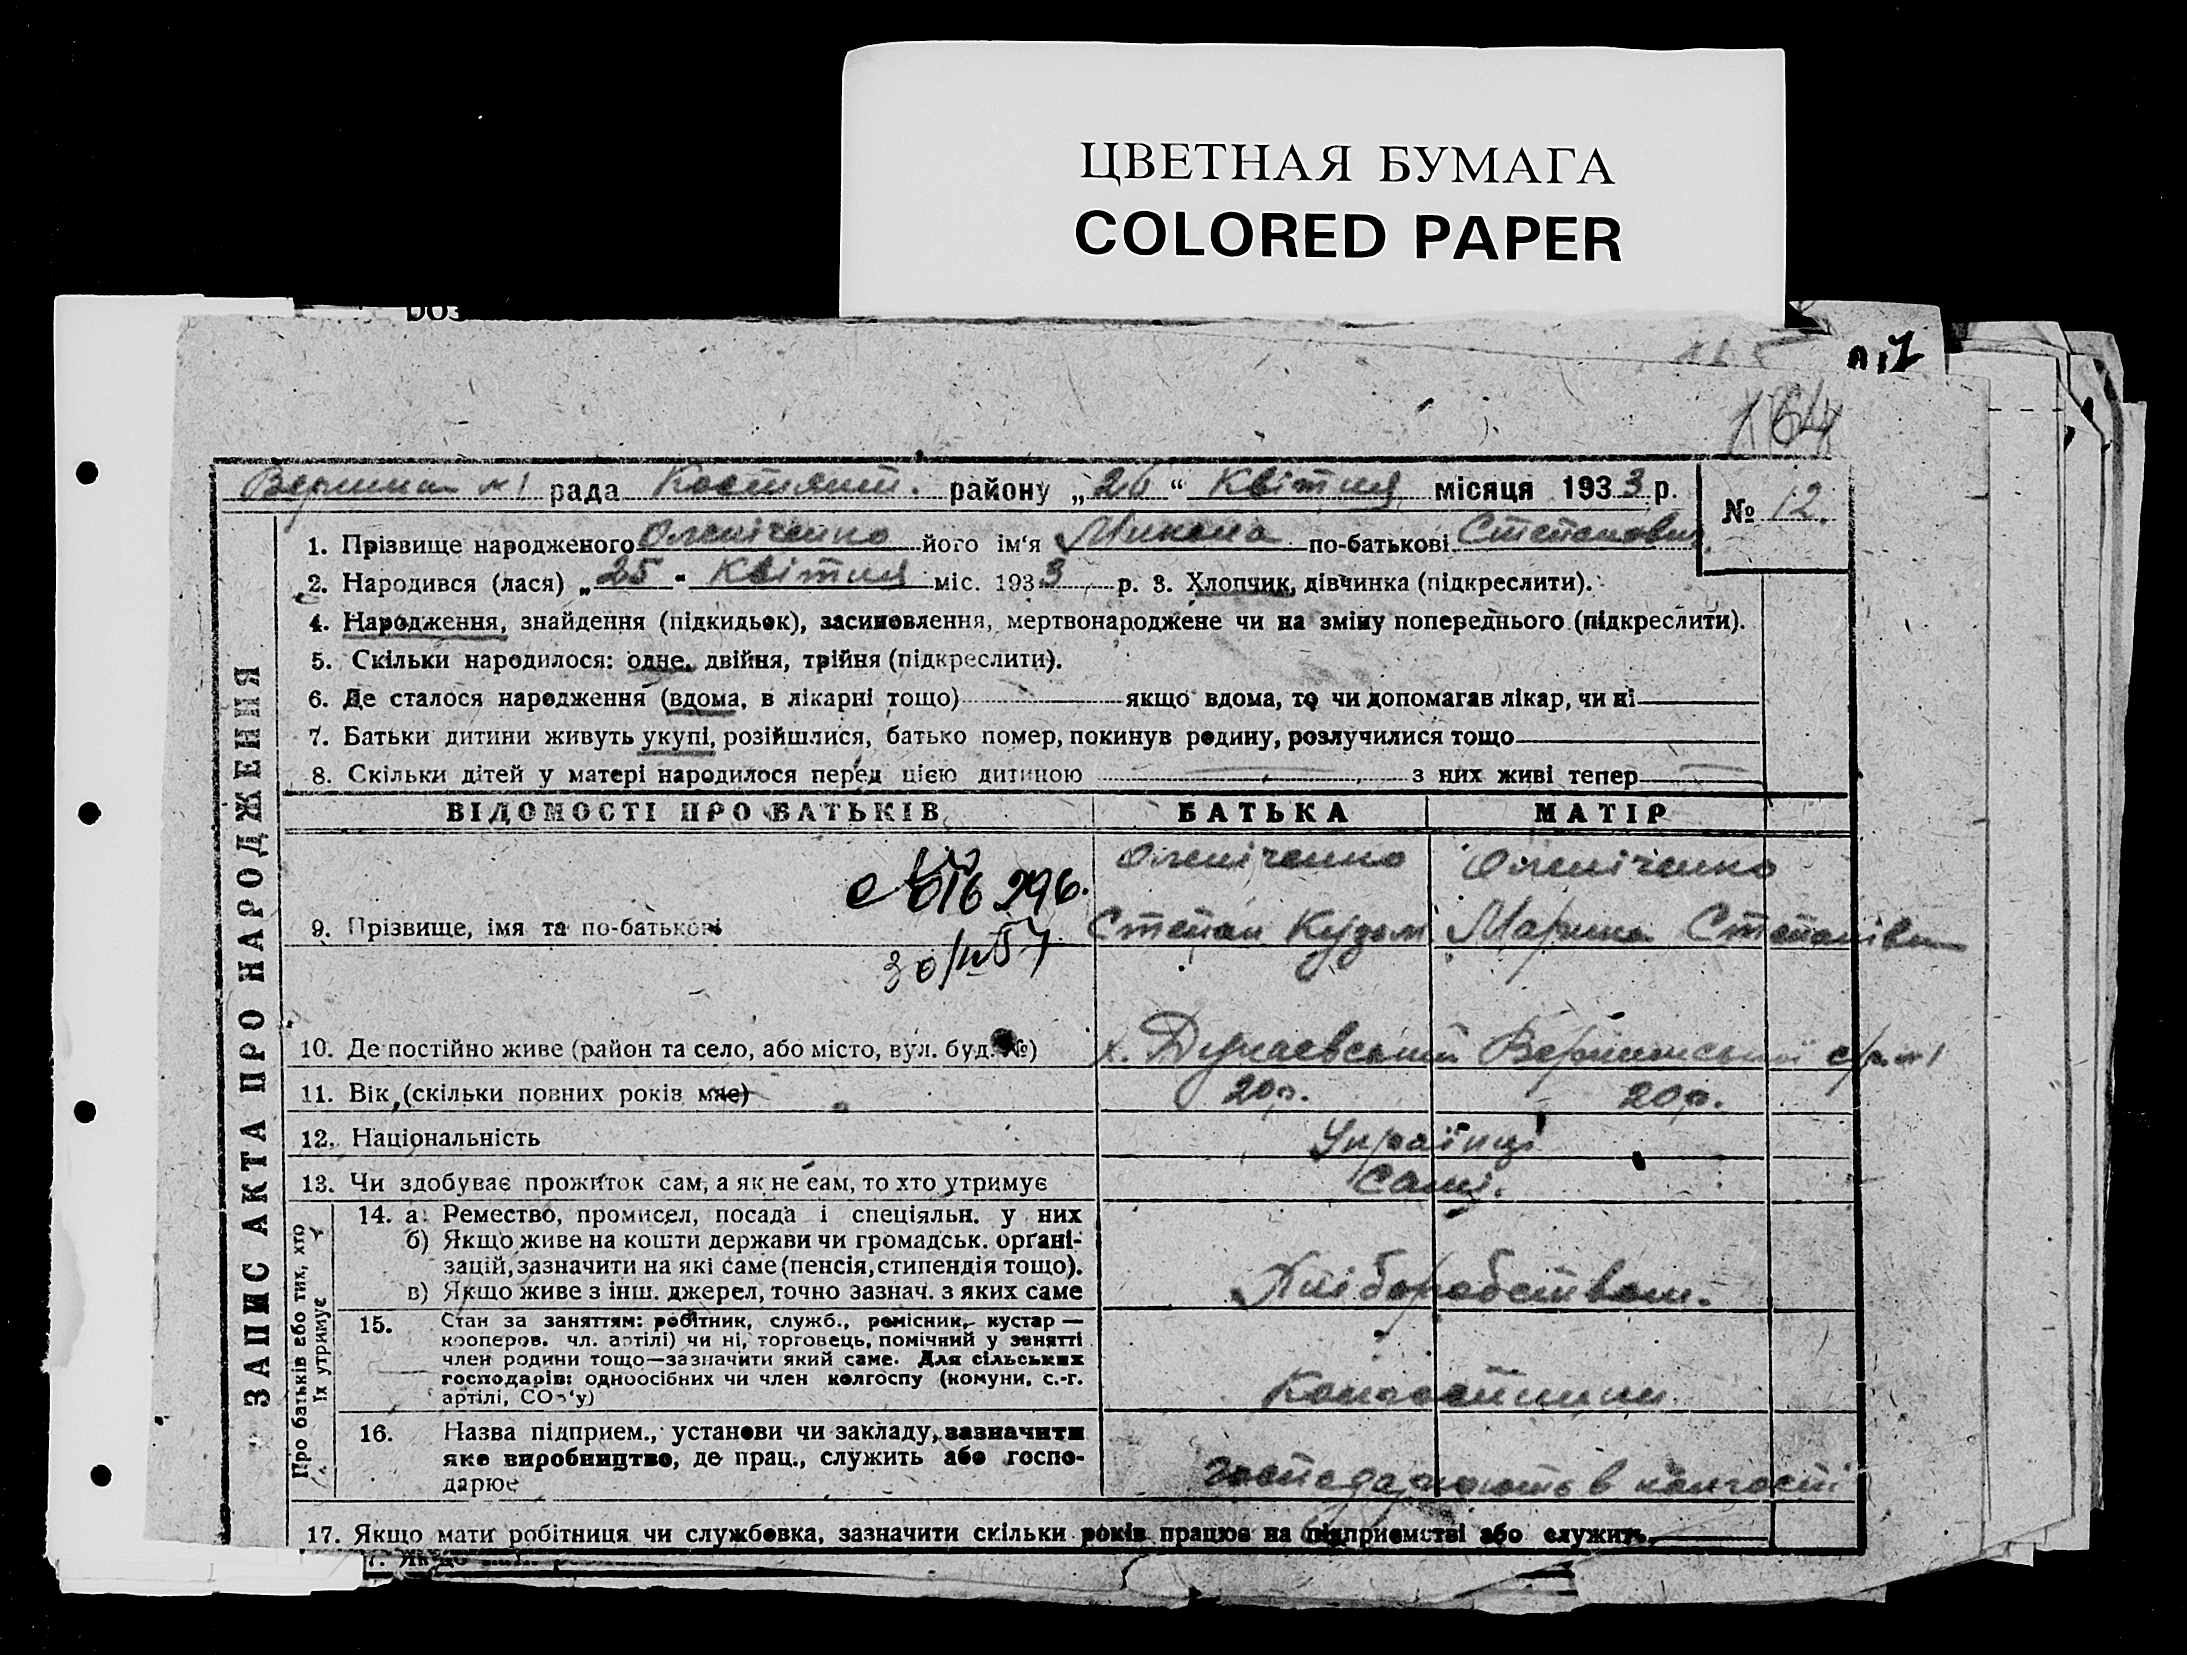 ЦВЕТНАЯ БУМАГА
COLORED PAPER
164
рада Костянт. району „26“ Квітня місяця 1933 р.
№ 12.
ЗАПИС АКТА ПРО НАРОДЖЕННЯ
1. Прізвище народженого його ім'я Микола по-батькові Степанович
2. Народився (лася) „25" Квітня міс. 1933 р. 3. Хлопчик, дівчинка (підкреслити).
4. Народження, знайдення (підкидьок), засиновлення, мертвонароджене чи на зміну попереднього (підкреслити).
5. Скільки народилося: одне, двійня, трійня (підкреслити).
6. Де сталося народження (вдома, в лікарні тощо) якщо вдома, то чи допомагав лікар, чи ні
7. Батьки дитини живуть укупі, розійшлися, батько помер, покинув родину, розлучилися тощо
8. Скільки дітей у матері народилося перед цією дитиною з них живі тепер
ВІДОМОСТІ ПРО БАТЬКІВ БАТЬКА МАТІР
016296.
9. Прізвище, імя та по-батькові Степан Кузьм. Марина Степанівна
30/IV57
10. Де постійно живе (район та село, або місто, вул. буд. №) х. Дунаевський
11. Вік (скільки повних років має) 20 р. 20 р.
12. Національність Українці
13. Чи здобуває прожиток сам, а як не сам, то хто утримує Самі.
Про батьків або тих, хто їх утримує
14. а. Ремество, промисел, посада і спеціяльн. у них
б) Якщо живе на кошти держави чи громадськ. органі-
зацій, зазначити на які саме (пенсія, стипендія тощо).
в) Якщо живе з інш. джерел, точно зазнач. з яких саме Хліборобством.
15. Стан за заняттям: робітник, служб., ремісник, кустар —
кооперов. чл. артілі) чи ні, торговець, помічний у занятті
член родини тощо—зазначити який саме. Для сільських
господарів: одноосібних чи член колгоспу (комуни, с.-г.
артілі, СОЗ'у) Колгоспники
16. Назва підприєм., установи чи закладу, зазначити
яке виробництво, де прац., служить або госпо-
дарює господарюють в колгоспі
17. Якщо мати робітниця чи службовка, зазначити скільки років працює на підприємстві або служить